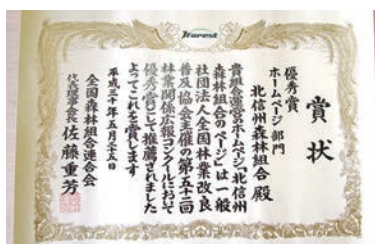 Jforest
賞状
優秀賞
ホームページ部門
北信州森林組合 殿
貴組合運営のホームページ「北信州
森林組合のページ」は一般
社団法人全国林業改良
普及協会主催の第五十二回
林業関係広報コンクールにおいて
優秀賞として推薦されました
よってこれを賞します
平成三十年五月二十五日
全国森林組合連合会
代表理事会長 佐藤重芳